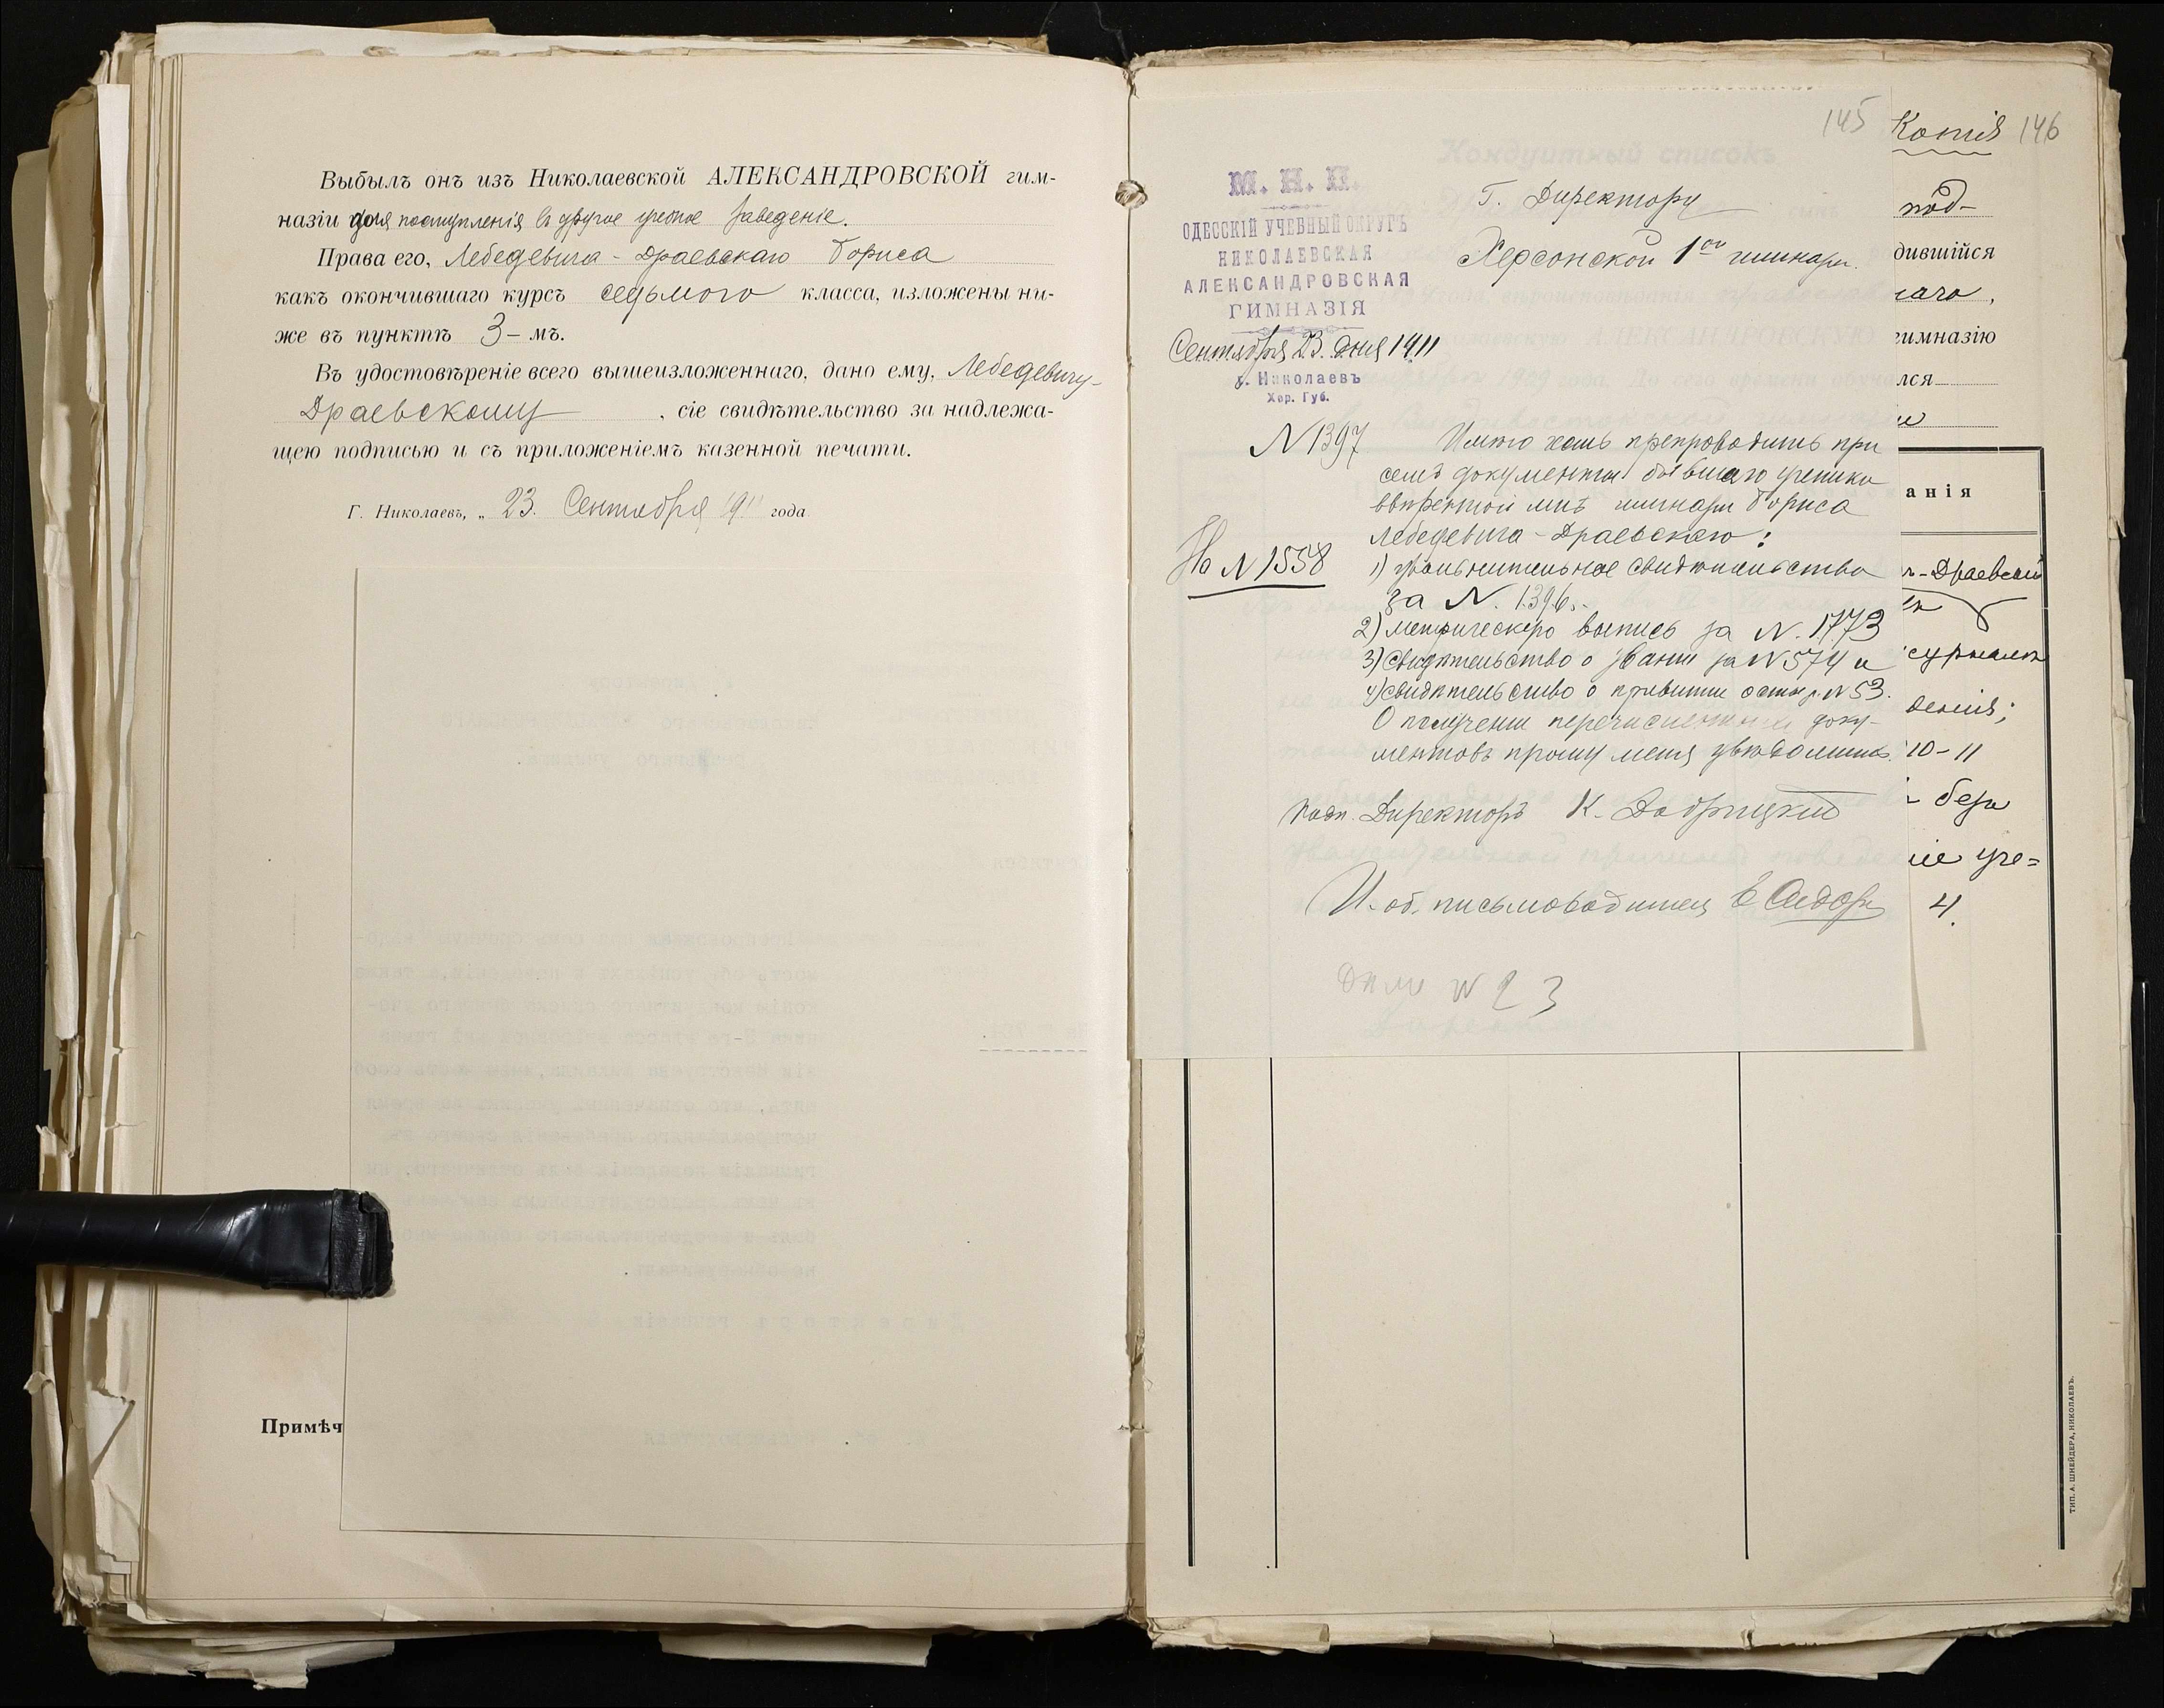 Выбылъ онъ изъ Николаевской АЛЕКСАНДРОВСКОЙ гим-
назіи для поступленія въ другое учебное заведеніе.
Права его, Лебедевича-Драевскаго Бориса
какъ окончившаго курсъ седьмого класса, изложены ни-
же въ пунктѣ 3-мъ.
Въ удостовѣреніе всего вышеизложеннаго, дано ему, Лебедевичу-
Драевскому, сіе свидѣтельство за надлежа-
щею подписью и съ приложеніемъ казенной печати.
Г. Николаевъ, „ 23. Сентября 1911 года.
Примѣч
145
М. Н. П.
ОДЕССКІЙ УЧЕБНЫЙ ОКРУГЪ
НИКОЛАЕВСКАЯ
АЛЕКСАНДРОВСКАЯ
ГИМНАЗІЯ
Сентября 23. дня 1911
г. Николаевъ
Хер. Губ.
N 1397
На N 1558
Г. Директору
Херсонской 1ой гимназіи.
Имѣю честь препроводить при
семъ документы бывшаго ученика
ввѣренной мнѣ гимназіи Бориса
Лебедевича-Драевскаго:
1) увольнительное свидѣтельство
за N. 1396.
2) метрическую выпись за N. 1773
3) свидѣтельство о званіи за N 574 и
4) свидѣтельство о привитіи оспы з. N 53.
О полученіи перечисленныхъ доку-
ментовъ прошу меня увѣдомить.
Подп. Директоръ К. Добрицкій
И. об. письмоводителя
Дѣло N 23
Копія 146
под-
дившійся
гимназію
лся
анія
ч-Драевскій
денія;
10-11
безъ
іе уче=
4.
ТИП. А. ШНЕЙДЕРА, НИКОЛАЕВЪ.